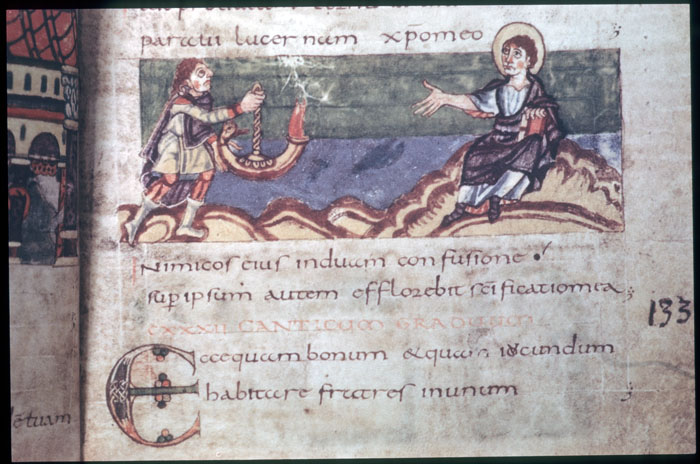 paraui lucernam xp̅omeo
Nimicos eius induam confusione
sup ipsum autem efflorebit scificatiomea
CXXXII CANTICUM GRADUUM
Ecce quam bonum & quam iocundum
habitare fratres inunum
133
&tuam